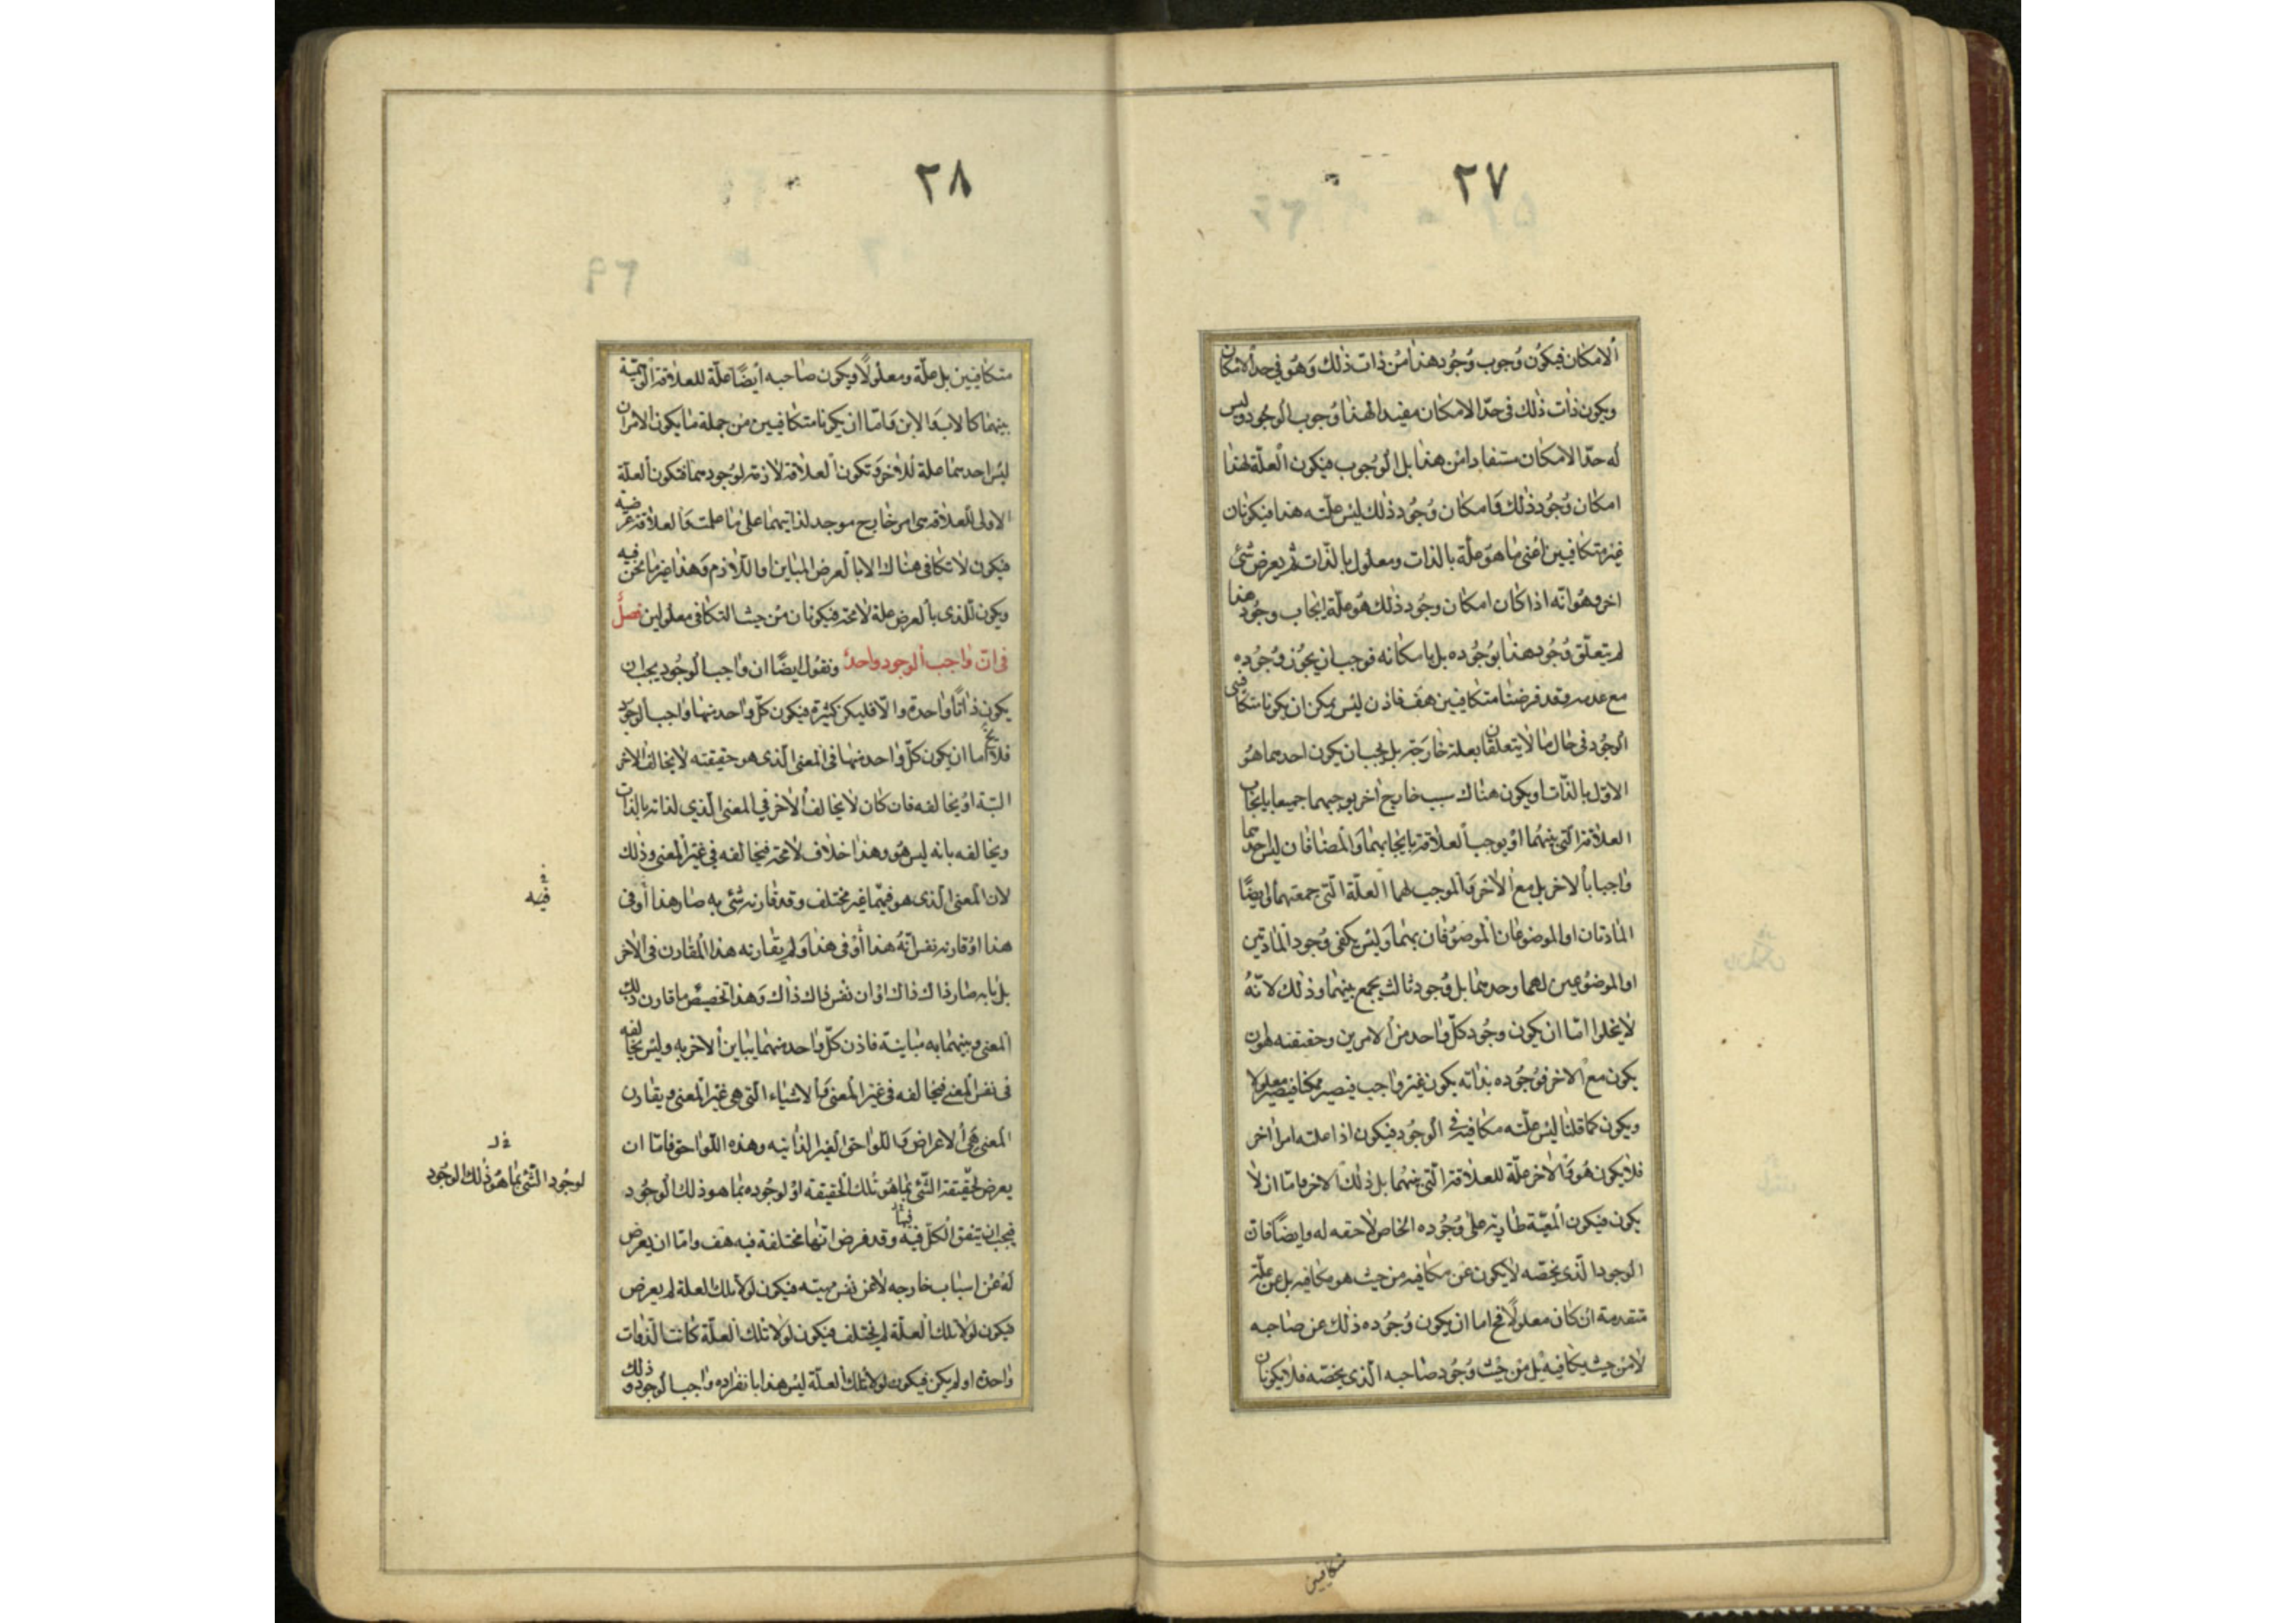 ٢٧
الامكان فيكون وجوب وجود هذا من ذات ذلك وهو في حد الامكان
ويكون ذات ذلك فى حدّ الامكان مفيدا لهذا وجوب الوجود وليس
له حدّ الامكان مستفادا من هذا بل الوجوب فيكون العلّة لهذا
امكان وجود ذلك وامكان وجود ذلك ليس علّته هذا فيكونان
غير متكافيين اعنى ما هو علّة بالذات ومعلول بالذّات ثم يعرض شئ
اخر وهو انّه اذا كان امكان وجود ذلك هو علّة ايجاب وجود هذا
لم يتعلّق وجود هذا بوجوده بل بامكانه فوجب ان يجوز وجوده
مع عدمه وقد فرضنا متكافيين هف فاذن ليس يمكن ان يكونا متكافئى
الوجود فى حال ما لا يتعلقان بعلة خارجة بل يجب ان يكون احدهما هو
الاوّل بالذّات او يكون هناك سبب خارج اخر يوجبهما جميعا بايجاب
العلاقة الّتى بينهما او يوجب العلاقة بايجابهما والمضافان ليس احدهما
واجبا بالاخر بل مع الاخر والموجب لهما العلّة الّتى جمعتهما وايضًا
المادتان او الموضوعان الموصوفان بهما وليس يكفى وجود المادتين
او الموضوعين لهما وحدهما بل وجود ثالث يجمع بينهما وذلك لانّه
لا يخلوا امّا ان يكون وجود كلّ واحد من الامرين وحقيقته هو ان
يكون مع الاخر فوجوده بذاته يكون غير واجب فيصير ممكنا فيصير معلولا
ويكون كما قلنا ليس علّته مكافيه فى الوجود فيكون اذا علته امرا اخر
فلا يكون هو والاخر علّة للعلاقة الّتى بينهما بل ذلك الاخر وامّا ان لا
يكون فيكون المعيّة طارية على وجوده الخاص لاحقه له وايضًا فان
الوجود الّذى يخصّه لا يكون عن مكافيه من حيث هو مكافيه بل عن علّة
متقدمة ان كان معلولًا فح اما ان يكون وجوده ذلك عن صاحبه
لا من حيث يكافيه بل من حيث وجود صاحبه الّذى يخصّه فلا يكونان
متكافيين
٢٨
متكافيين بل علّة ومعلولًا ويكون صاحبه ايضًا علّة للعلاقة الوهميّة
بينهما كالاب والابن وامّا ان يكونا متكافيين من جملة ما يكون الامران
ليس احدهما علة للاخر وتكون العلاقة لازمة لوجودهما فتكون العلّة
الاولى للعلاقة هى امر خارج موجد لذاتيهما على ما علمت والعلاقة عرضيّه
فيكون لا تكافى هناك الا بالعرض المباين او اللّازم وهذا غير ما نحن فيه
ويكون للّذى بالعرض علة لا محة فيكونان من حيث التكافى معلولين فصلٌ
فى انّ واجب الوجود واحدٌ ونقول ايضًا ان واجب الوجود يجب ان
يكون ذاتًا واحدة والّا فليكن كثيرة فيكون كلّ واحد منها واجب الوجود
فلا يخ اما ان يكون كلّ واحد منها فى المعنى الّذى هو حقيقته لا يخالف الاخر
البتّة او يخالفه فان كان لا يخالف الاخر في المعنى الّذي لذاته بالذات
ويخالفه بانه ليس هو وهذا خلاف لا محة فيخالفه فى غير المعنى وذلك
لان المعنى الّذى هو فيهما غير مختلف وقد قارنه شئ به صار هذا او فى
هذا او قارنه نفس انّه هذا او فى هذا ولم يقارنه هذا المقارن فى الاخر
بل ما به صار ذاك ذاك او ان نفس ذاك ذاك وهذا تخصيصٌ ما قارن ذلك
المعنى وبينهما به مباينة فاذن كلّ واحد منهما يباين الاخر به وليس يخالفه
فى نفس المعنى فيخالفه فى غير المعنى والاشياء الّتى هى غير المعنى ويقارن
المعنى هى الاعراض واللّواحق الغير الذاتيه وهذه اللّواحق فامّا ان
يعرض لحقيقة الشّئ بما هو تلك الحقيقه او لوجوده بما هو ذلك الوجود
فيجب ان يتفق الكلّ فيه وقد فرض انّها مختلفة فيه هف وامّا ان يعرض
له عن اسباب خارجه لا عن نفس مهيته فيكون لولا تلك العلة لم يعرض
فيكون لولا تلك العلّة لم يختلف فيكون لولا تلك العلّة كانت الذّوات
واحدة او لم يكن فيكون لولا تلك العلّة ليس هذا بانفراده واجب الوجود وذلك
فيه
لوجود الشّئ بما هو ذلك الوجود